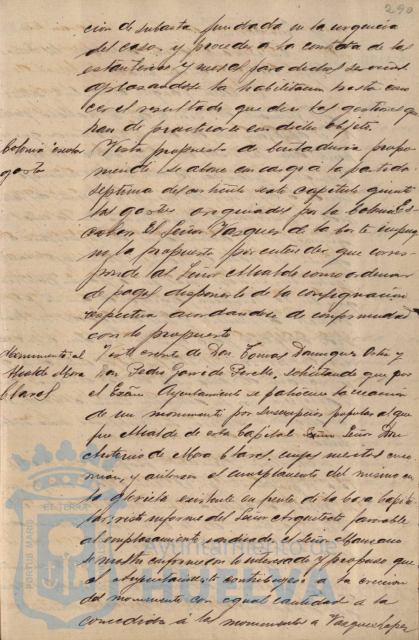 290
cion de subasta fundada en la urgencia
del caso y proceder a la contrata de las
estanterias y mesas para dichos servicios
aplazandose la habilitacion hasta cono
cer el resultado que den las gestiones que
han de practicarse con dicho objeto.
Colonia escolar
gastos
Vista propuesta de Contaduria propo
niendo se abone con cargo á la partida
septima del articulo sexto capitulo quinto
los gastos originados por la Colonia Es
colar. El Señor Vazquez de la Corte impug
na la propuesta por entender que corres
ponde al Señor Alcalde como ordenador
de pagos disponer de la consignacion
respectiva acordandose de conformidad
con lo propuesto
Monumento al
Alcalde Mora
Claros
Visto escrito de Don Tomas Dominguez Ortiz y
Don Pedro Garrido Perello, solicitando que por
el Excmo Ayuntamiento se patrocine la creacion
de un monumento por suscripcion popular al que
fue Alcalde de esta Capital Señor Don
Antonio de Mora Claros, cuyos meritos
y autorizan el emplazamiento del mismo en
la glorieta existente en frente de la
visto informe del Señor Arquitecto favorable
al emplazamiento indicado el Señor
se muestra conforme con lo interesado y propuso que
el Ayuntamiento contribuyese a la creacion
del monumento con igual cantidad a la
concedida á los monumentos a Vazquez Lopez
Ayuntamiento de
HUELVA
PORTUS MARIS
ET TERRAE